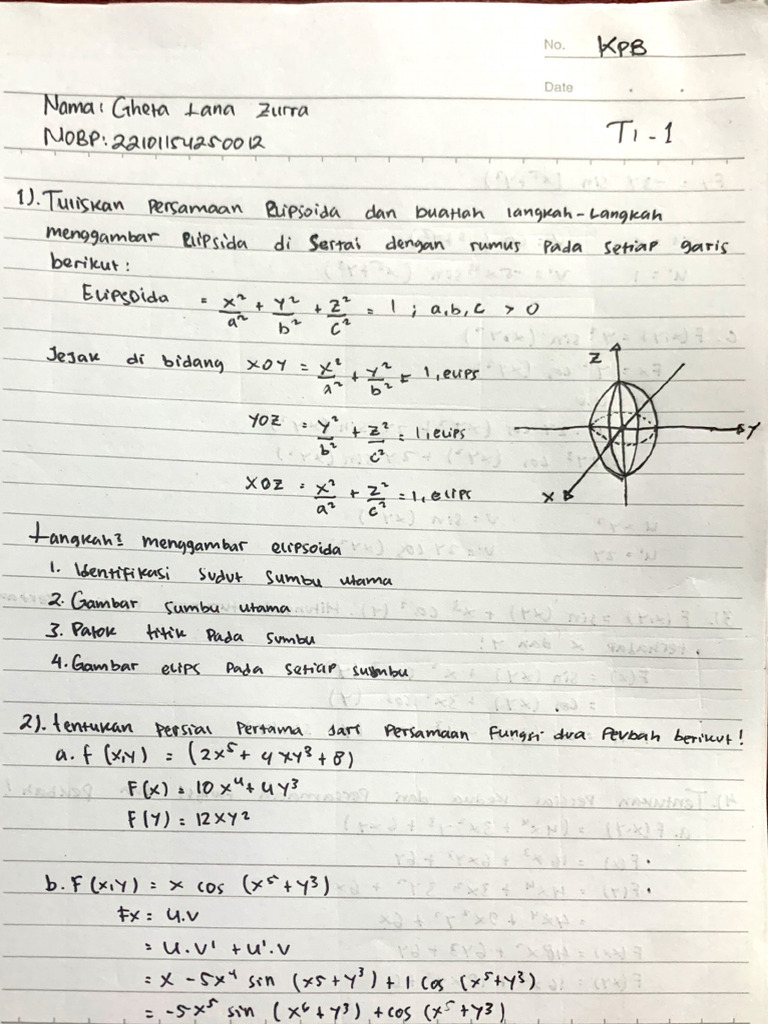 No. KPB
Date . .
Nama: Gheta Lana Zurra
NOBP: 22101154250012
TI-1
1). Tuliskan Persamaan Elipsoida dan buatlah langkah-Langkah
menggambar Elipsida di Sertai dengan rumus Pada setiap garis
berikut:
Elipsoida = x²/a² + y²/b² + z²/c² = 1 ; a,b,c > 0
Jejak di bidang XOY = x²/a² + y²/b² = 1, elips
YOZ = y²/b² + z²/c² = 1, elips
XOZ = x²/a² + z²/c² = 1, elips
Z
Y
X
Langkah² menggambar elipsoida
1. Identifikasi sudut sumbu utama
2. Gambar sumbu utama
3. Patok titik Pada sumbu
4. Gambar elips Pada setiap sumbu
2). tentukan Persial Pertama dari Persamaan Fungsi dua Peubah berikut!
a. f (x,y) = (2x⁵ + 4xy³ + 8)
F(x) = 10x⁴ + 4y³
F(y) = 12xy²
b. F (x,y) = x cos (x⁵ + y³)
Fx = u.v
= u.v' + u'.v
= x - 5x⁴ sin (x5 + y³) + 1 cos (x⁵ + y³)
= -5x⁵ sin (x⁶ + y³) + cos (x⁵ + y³)